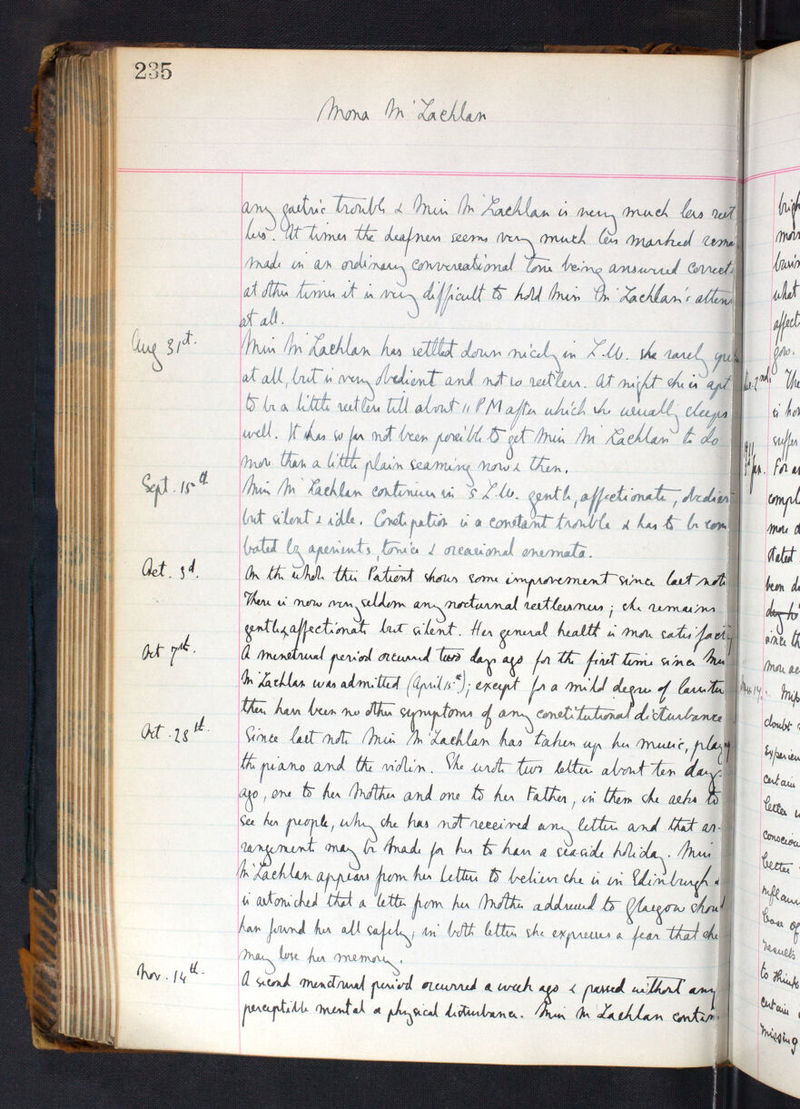 235
Mona McLachlan
any gastric trouble & Miss McLachlan is very much less rest
less. At times the deafness seems very much less marked rema
made in an ordinary conversational tone being answered correct
at other times it is very difficult to hold Miss McLachlan's atten
at all.
Aug 31st. Miss McLachlan has settled down nicely in L.W. she rarely
at all, but is very obedient and not so restless. At night she is apt
to be a little restless till about 11 PM after which she usually sleeps
well. It has so far not been possible to get Miss McLachlan to do
more than a little plain seaming now & then.
Sept. 15th Miss McLachlan continues in S L.W. gentle, affectionate, obedien
but silent & idle. Constipation is a constant trouble & has to be com
bated by aperients, tonics & occasional enemata.
Oct. 3d. On the whole this Patient shows some improvement since last note
There is now very seldom any nocturnal restlessness; she remains
gentle, affectionate but silent. Her general health is more satisfact
Oct 7th. A menstrual period occurred two days ago for the first time since Miss
McLachlan was admitted (April 15th); except for a mild degree of lassitu
there have been no other symptoms of any constitutional disturbance
Oct. 28th. Since last note Miss McLachlan has taken up her music, play
the piano and the violin. She wrote two letters about ten days
ago, one to her Mother and one to her Father, in them she asks to
see her people, why she has not received any letters and that ar-
rangement may be made for her to have a seaside holiday. Miss
McLachlan appears from her letters to believe she is in Edinburgh &
is astonished that a letter from her Mother addressed to Glasgow shou
have found her all safely; in both letters she expresses a fear that she
may lose her memory.
Nov. 14th. A second menstrual period occurred a week ago & passed without any
perceptible mental or physical disturbance. Miss McLachlan contin